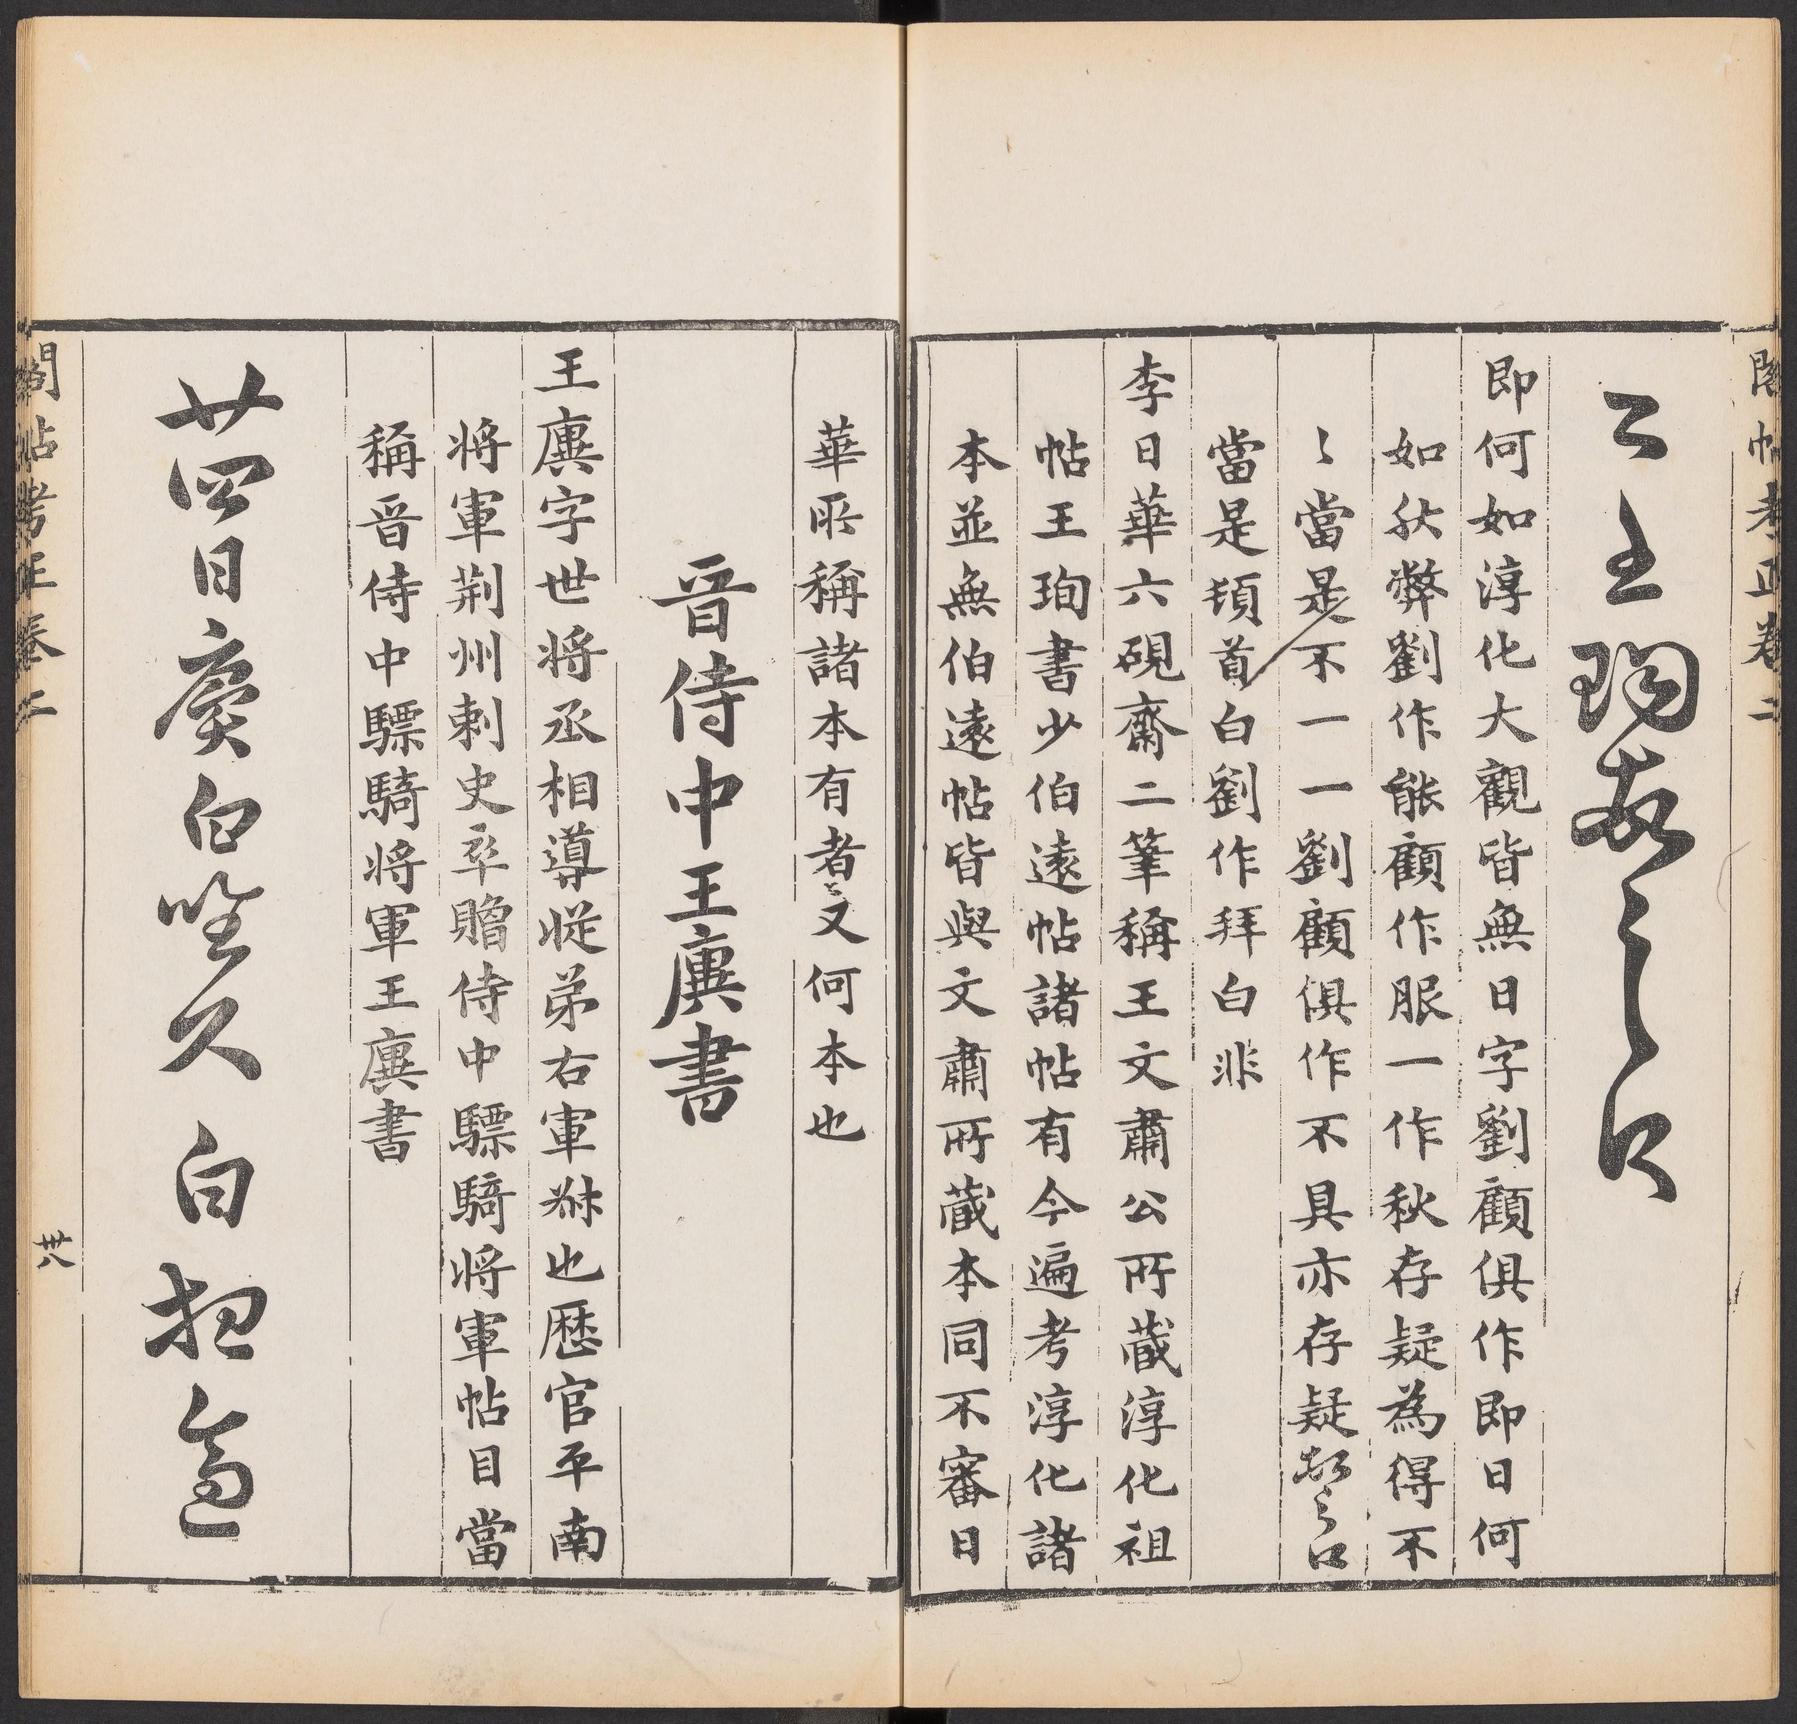 閣帖考正卷二
王珣
即何如淳化大觀皆無日字劉顧俱作即日何
如秋弊劉作能顧作服一作秋存疑為得不
〻當是不一一劉顧俱作不具亦存疑
當是頓首白劉作拜白非
李日華六硯齋二筆稱王文肅公所藏淳化祖
帖王珣書少伯遠帖諸帖有今遍考淳化諸
本並無伯遠帖皆與文肅所藏本同不審日
華所稱諸本有者〻又何本也
晉侍中王廙書
王廙字世將丞相導從弟右軍叔也歷官平南
將軍荆州刺史卒贈侍中驃騎將軍帖目當
稱晉侍中驃騎將軍王廙書
廿四日廙白
久白
閣帖考正卷二
卅八